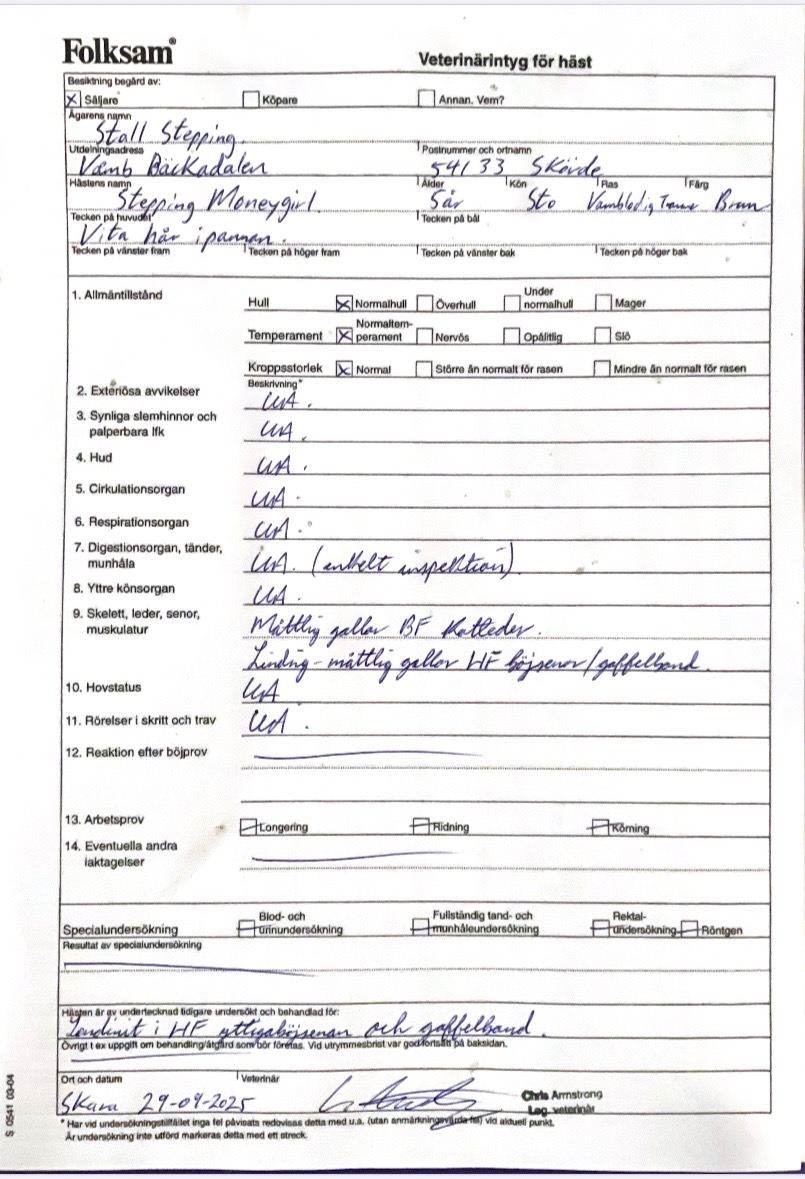 Folksam®
Veterinärintyg för häst
Besiktning begärd av:
Säljare Köpare Annan. Vem?
Ägarens namn
Stall Stepping.
Utdelningsadress Postnummer och ortnamn
Våmb Bäckadalen 541 33 Skövde
Hästens namn Ålder Kön Ras Färg
Stepping Moneygirl. 5år Sto Varmblodig Travare Brun
Tecken på huvudet Tecken på bål
Vita hår i pannan.
Tecken på vänster fram Tecken på höger fram Tecken på vänster bak Tecken på höger bak
1. Allmäntillstånd
Hull Normalhull Överhull Under normalhull Mager
Temperament Normaltemperament Nervös Opålitlig Slö
Kroppsstorlek Normal Större än normalt för rasen Mindre än normalt för rasen
Beskrivning*
2. Exteriösa avvikelser UA.
3. Synliga slemhinnor och
palperbara lfk UA.
4. Hud UA.
5. Cirkulationsorgan UA.
6. Respirationsorgan UA.
7. Digestionsorgan, tänder,
munhåla UA. (enkelt inspektion)
8. Yttre könsorgan UA.
9. Skelett, leder, senor,
muskulatur Måttlig gallor BF Kotleder.
Lindrig - måttlig gallor HF böjsenor/gaffelband.
10. Hovstatus UA
11. Rörelser i skritt och trav UA.
12. Reaktion efter böjprov
13. Arbetsprov Longering Ridning Körning
14. Eventuella andra
iaktagelser
Specialundersökning Blod- och urinundersökning Fullständig tand- och munhåleundersökning Rektalundersökning Röntgen
Resultat av specialundersökning
Hästen är av undertecknad tidigare undersökt och behandlad för:
Tendinit i HF ytligaböjsenan och gaffelband.
Övrigt t ex uppgift om behandling/åtgärd som bör företas. Vid utrymmesbrist var god fortsätt på baksidan.
Ort och datum Veterinär
Skara 29-09-2025
Chris Armstrong
Leg. veterinär
* Har vid undersökningstillfället inga fel påvisats redovisas detta med u.a. (utan anmärkningsvärda fel) vid aktuell punkt.
Är undersökning inte utförd markeras detta med ett streck.
S 0541 03-04